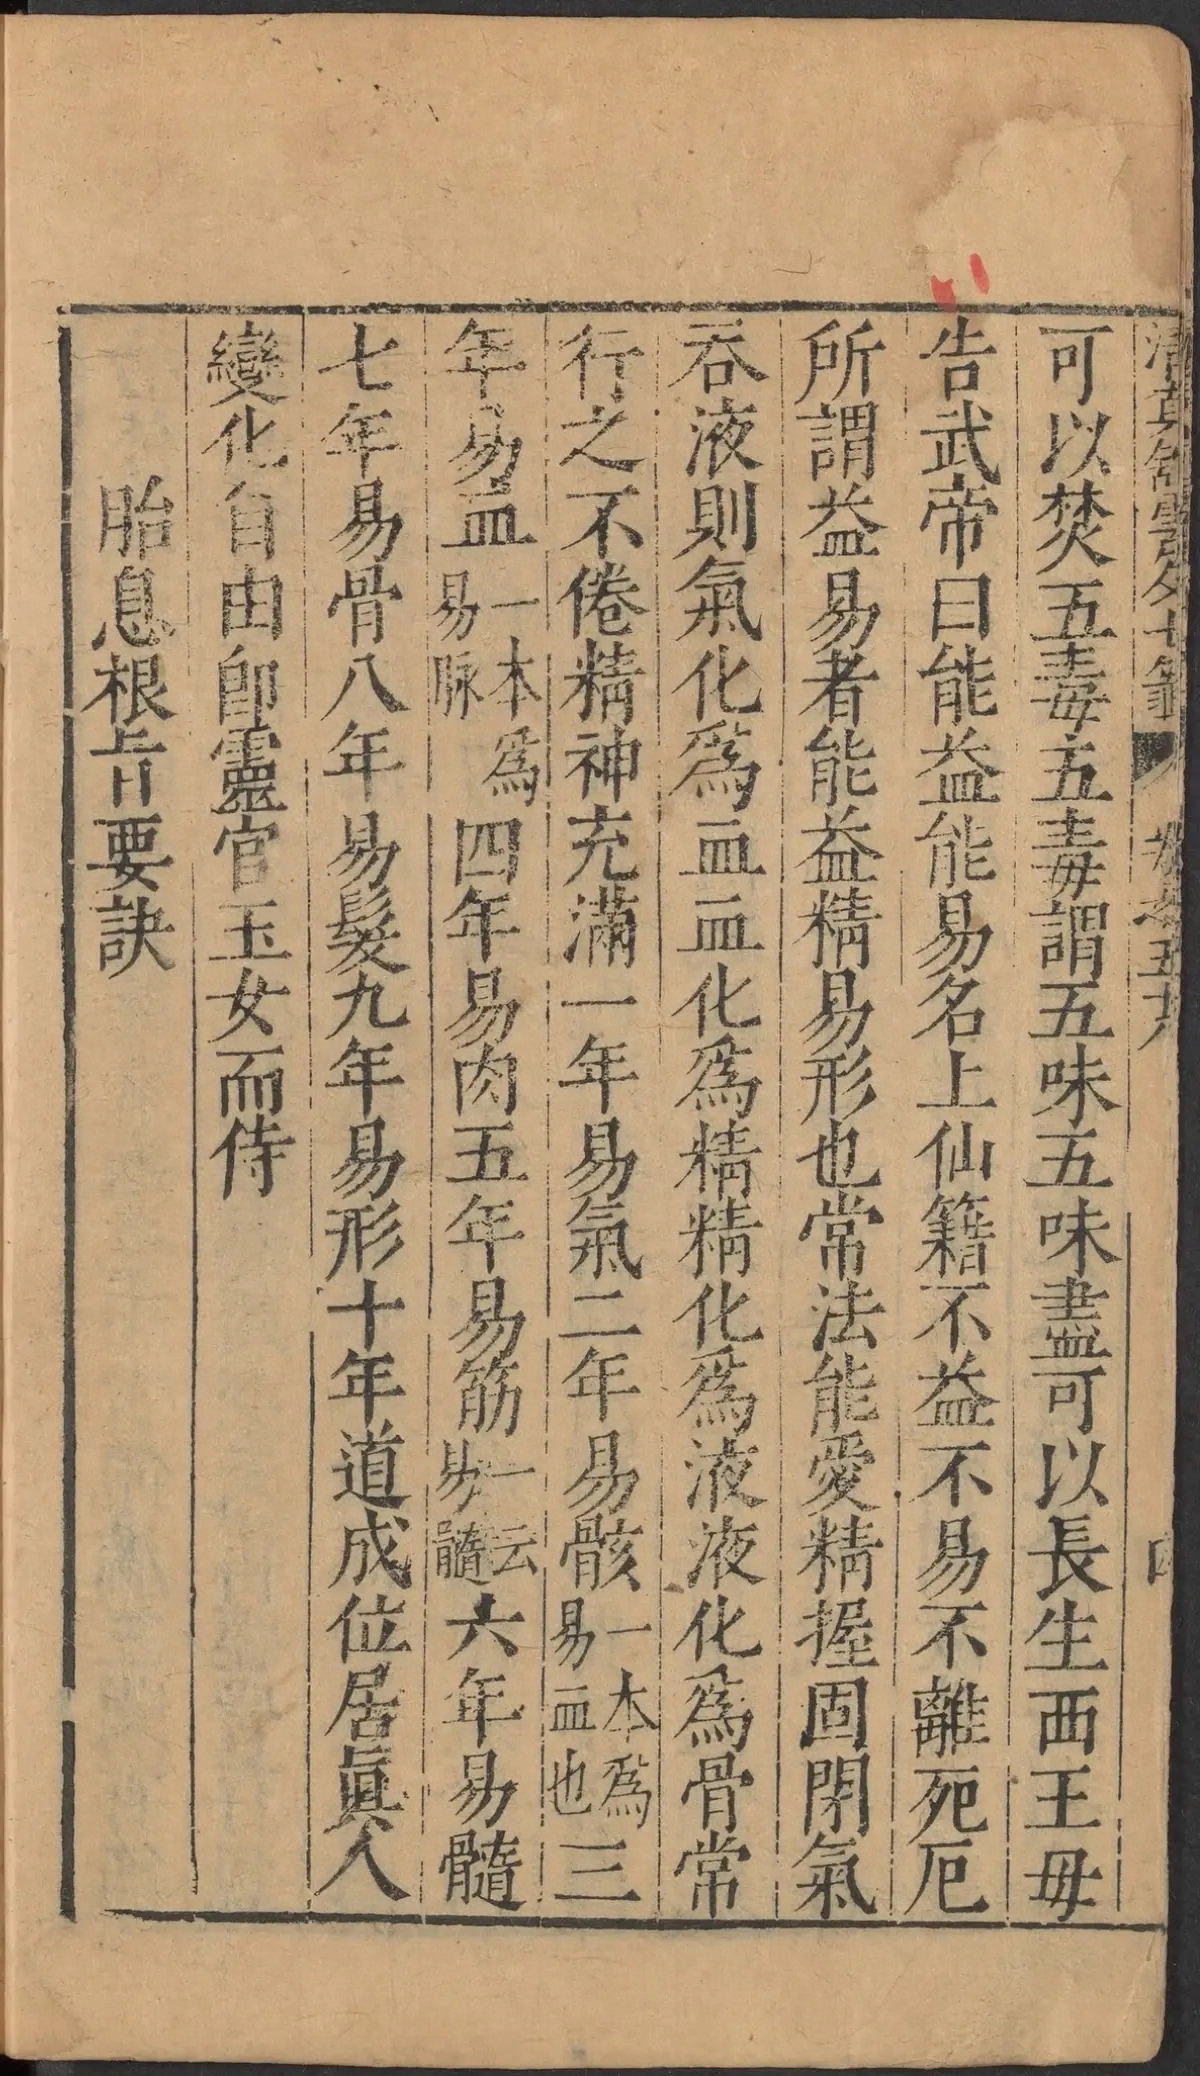 可以焚五毒五毒謂五味五味盡可以長生西王母
告武帝曰能益能易名上仙籍不益不易不離死厄
所謂益易者能益精易形也常法能愛精握固閉氣
吞液則氣化爲血血化爲精精化爲液液化爲骨常
行之不倦精神充滿一年易氣二年易骸一本爲易血也三
年易血一本爲易脉四年易肉五年易筋一云易髓六年易髓
七年易骨八年易髮九年易形十年道成位居眞人
變化自由卽靈官玉女而侍
胎息根旨要訣